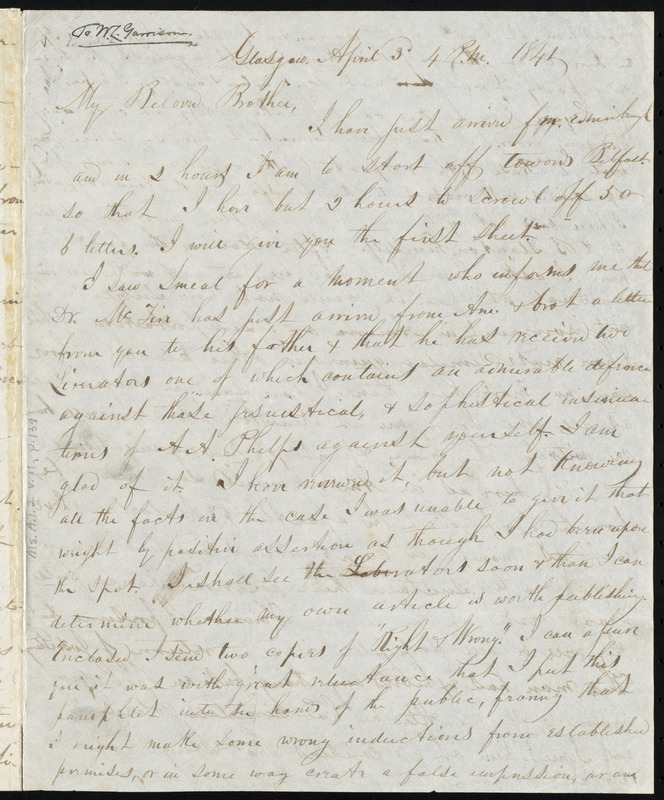 To W. L. Garrison.
Glasgow, April 3d 4 P.M. 1841
My Belovd Brother,
I have just arrivd fm. Edinburgh
and in 2 hours I am to start off toward Belfast
so that I have but 2 hours to scrawl off 5 or
6 letters. I will give you the first sheet.
I saw Smeal for a moment who informs me that
Dr. McTire has just arrivd from Ame. & brot a letter
from you to his father & that he has receivd two
Liberators one of which contains an admirable defence
against those jesuistical, & sophistical insinua
tions of A. A. Phelps against yourself. I am
glad of it. I have reviewd it, but not knowing
all the facts in the case I was unable to give it that
weight by positive assertion as though I had been upon
the spot. I shall see the Liberators soon & than I can
determine whether my own article is worth publishing.
Enclosd I send two copies of "Right & Wrong." I can assure
you it was with great reluctance that I put this
pamphlet into the hands of the public, fearing that
I might make some wrong inductions from established
premises, or in some way create a false impression, or am